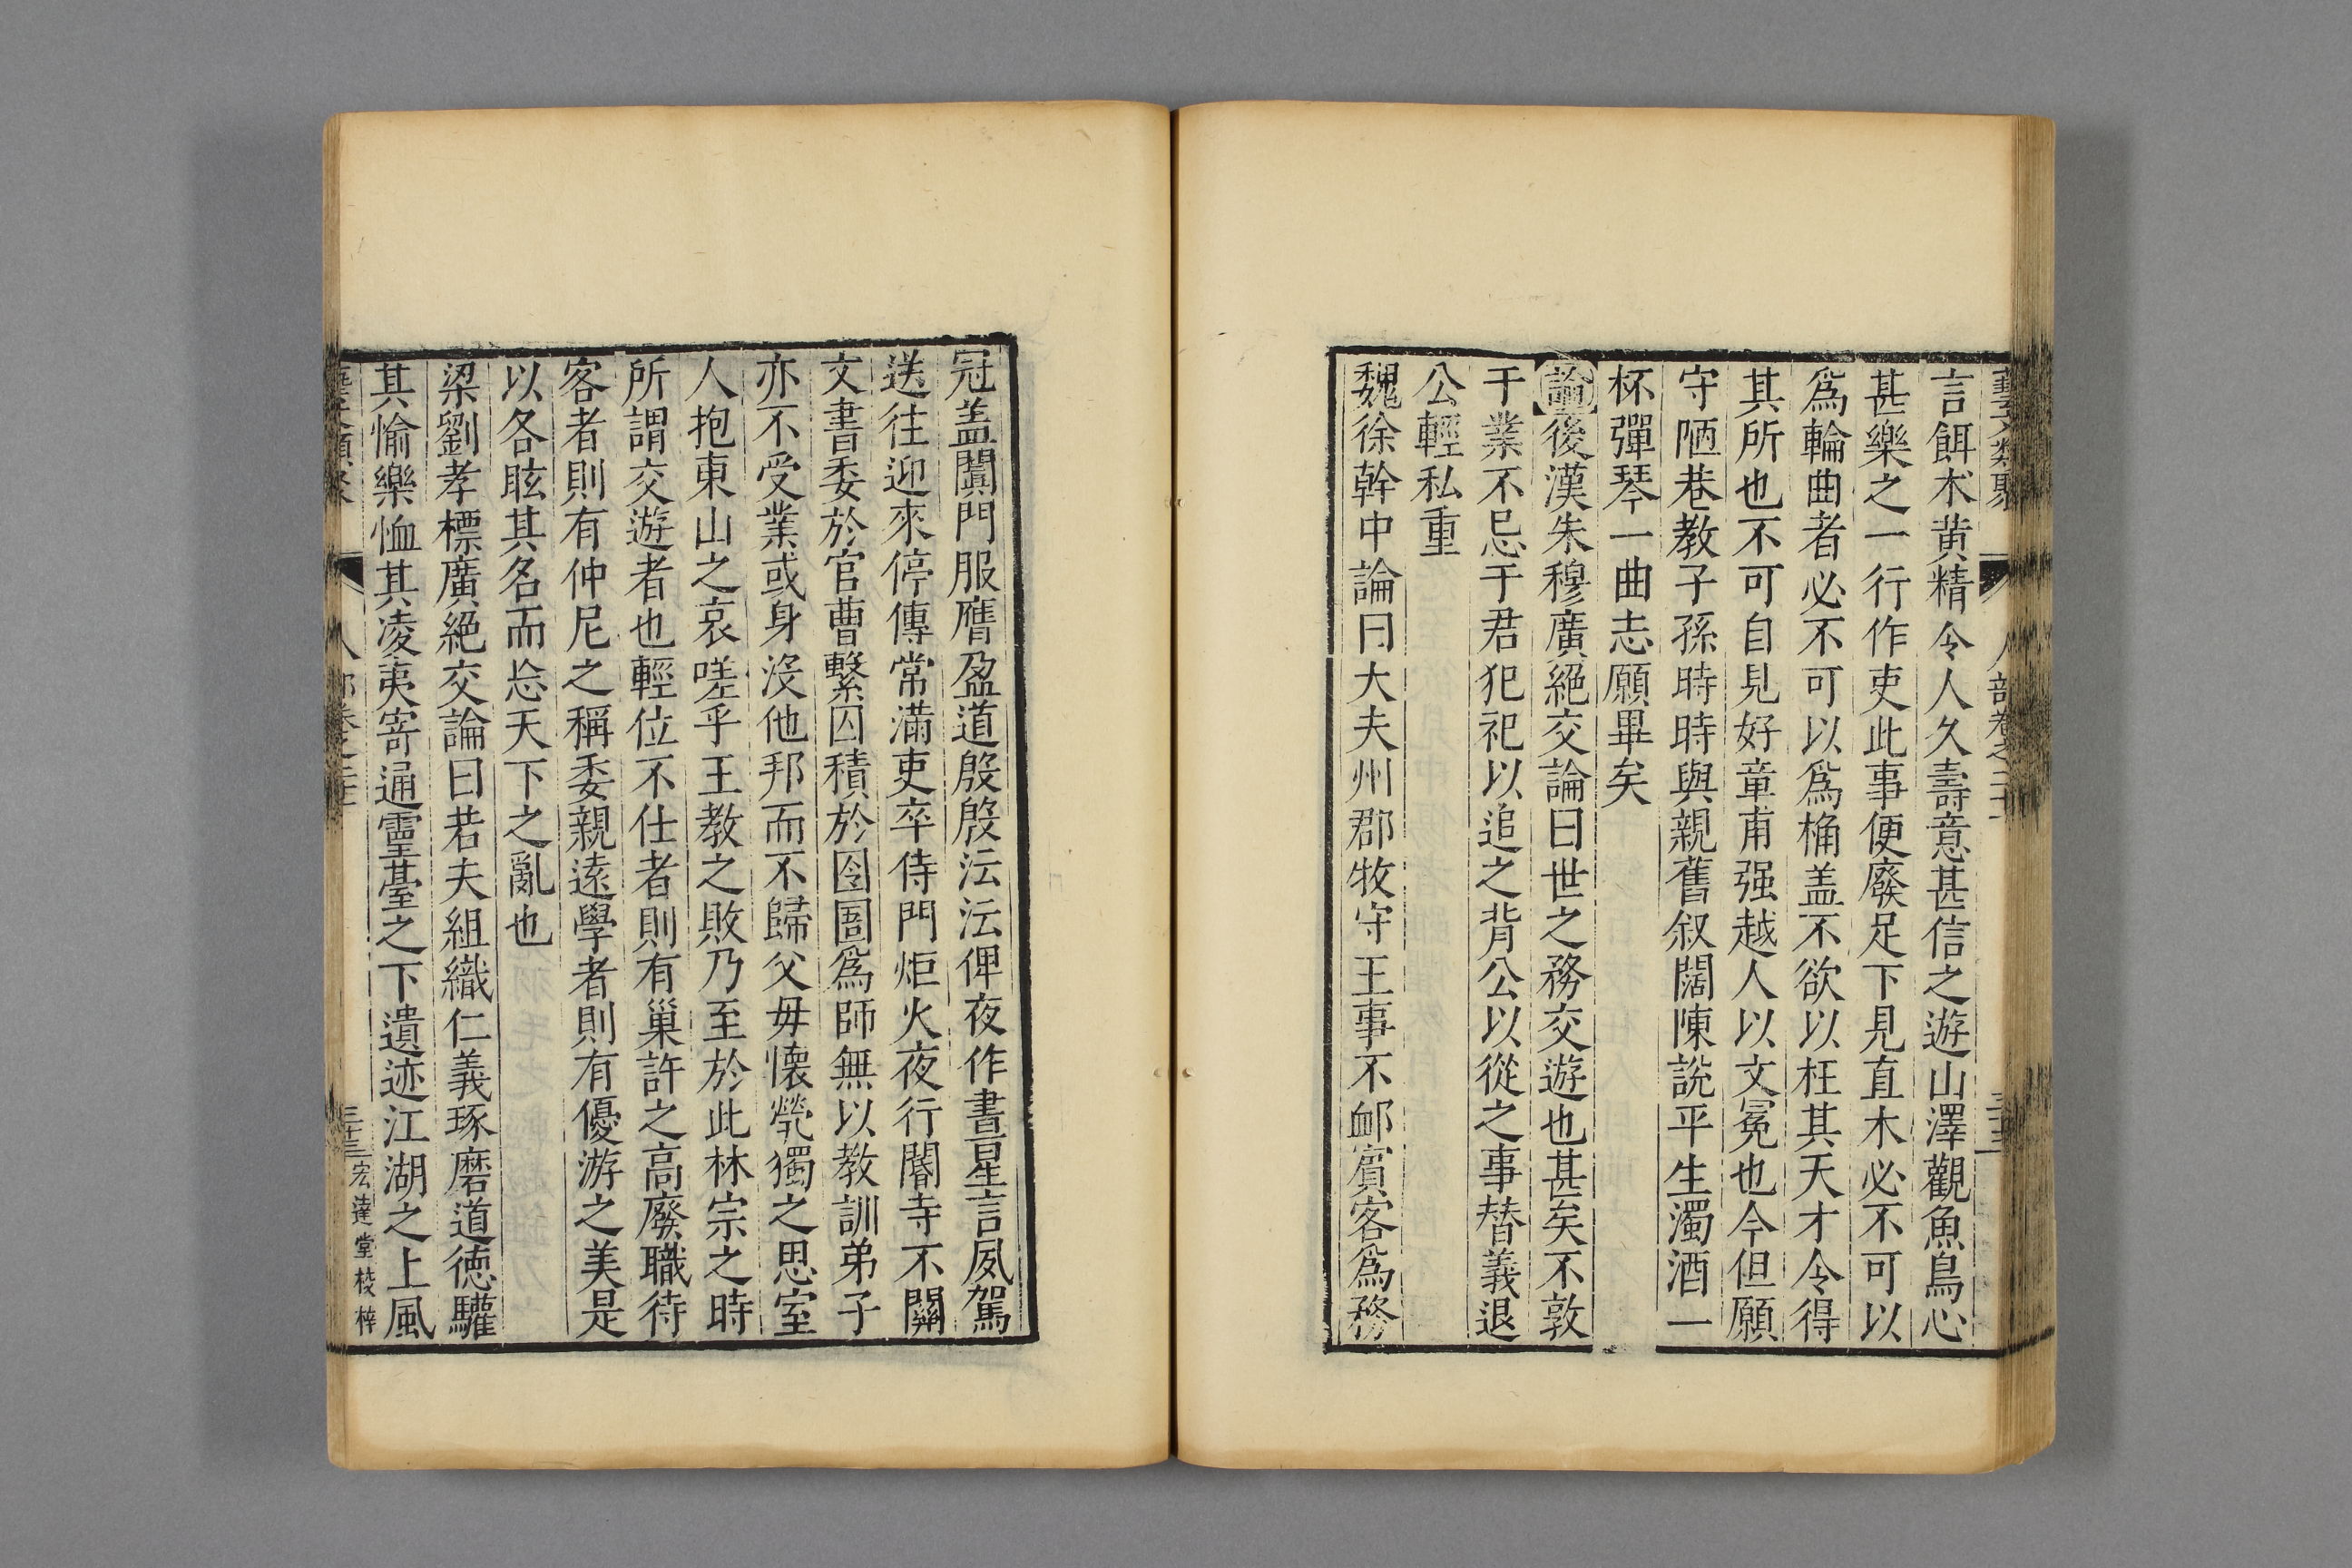 言餌朮黄精令人久壽意甚信之遊山澤觀魚鳥心
甚樂之一行作吏此事便廢足下見直木必不可以
爲輪曲者必不可以爲桷盖不欲以枉其天才令得
其所也不可自見好章甫强越人以文冕也今但願
守陋巷教子孫時時與親舊叙闊陳說平生濁酒一
杯彈琴一曲志願畢矣
論後漢朱穆廣絕交論曰世之務交遊也甚矣不敦
于業不忌于君犯祀以追之背公以從之事替義退
公輕私重
魏徐幹中論曰大夫州郡牧守王事不䘏賓客爲務
冠盖闐門服膺盈道殷殷沄沄俾夜作晝星言夙駕
送往迎來停傳常滿吏卒侍門炬火夜行閽寺不關
文書委於官曹繫囚積於囹圄爲師無以教訓弟子
亦不受業或身沒他邦而不歸父毋懷煢獨之思室
人抱東山之哀嗟乎王教之敗乃至於此林宗之時
所謂交遊者也輕位不仕者則有巢許之高廢職待
客者則有仲尼之稱委親遠學者則有優游之美是
以各眩其名而忘天下之亂也
梁劉孝標廣絕交論曰若夫組織仁義琢磨道德驩
其愉樂恤其凌夷寄通靈臺之下遺迹江湖之上風
宏達堂校梓